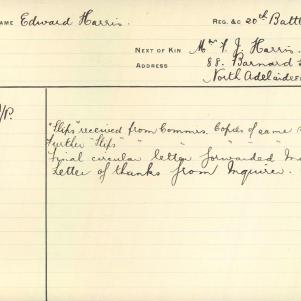 NAME Edward Harris. REG. &c 20th Batt
NEXT OF KIN Mr F. J. Harris.
ADDRESS 88. Barnard
North Adelaide
"Slips" received from Commrs. Copies of same
Further "Slips" " " " "
Final circular letter forwarded
Letter of thanks from Inquirer.